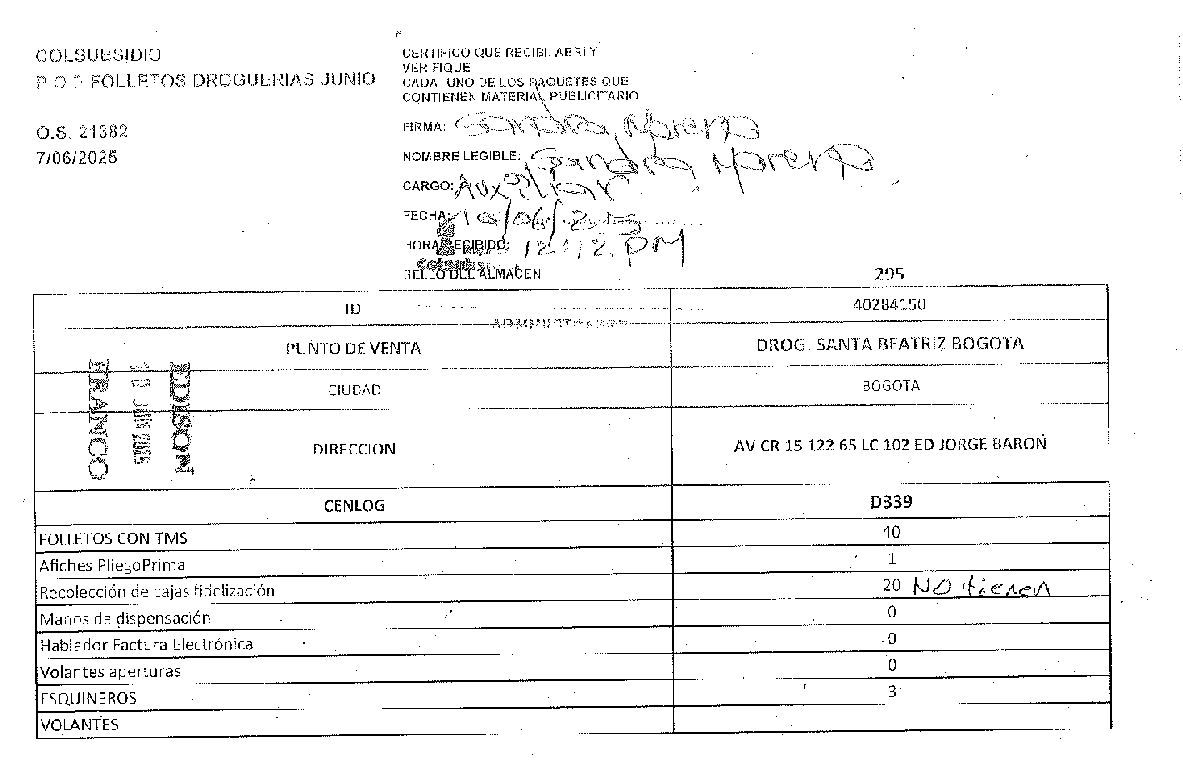 COLSUBSIDIO
P.O.P FOLLETOS DROGUERIAS JUNIO
O.S. 21382
7/06/2025
CERTIFICO QUE RECIBI, ABRI Y
VERIFIQUE
CADA UNO DE LOS PAQUETES QUE
CONTIENEN MATERIAL PUBLICITARIO
FIRMA: Sandra Moreno
NOMBRE LEGIBLE: Sandra Moreno
CARGO: Auxiliar
FECHA: 10/06/2025
HORA RECIBIDO: 12:12 PM
SELLO DEL ALMACEN
295
ID 40284150
PUNTO DE VENTA DROG. SANTA BEATRIZ BOGOTA
CIUDAD BOGOTA
DIRECCION AV CR 15 122 65 LC 102 ED JORGE BARON
EDISON
FRANCO
CENLOG D339
FOLLETOS CON TMS 10
Afiches PliegoPrima 1
Recolección de cajas fidelización 20 NO tienen
Manos de dispensación 0
Hablador Factura Electrónica 0
Volantes aperturas 0
ESQUINEROS 3
VOLANTES